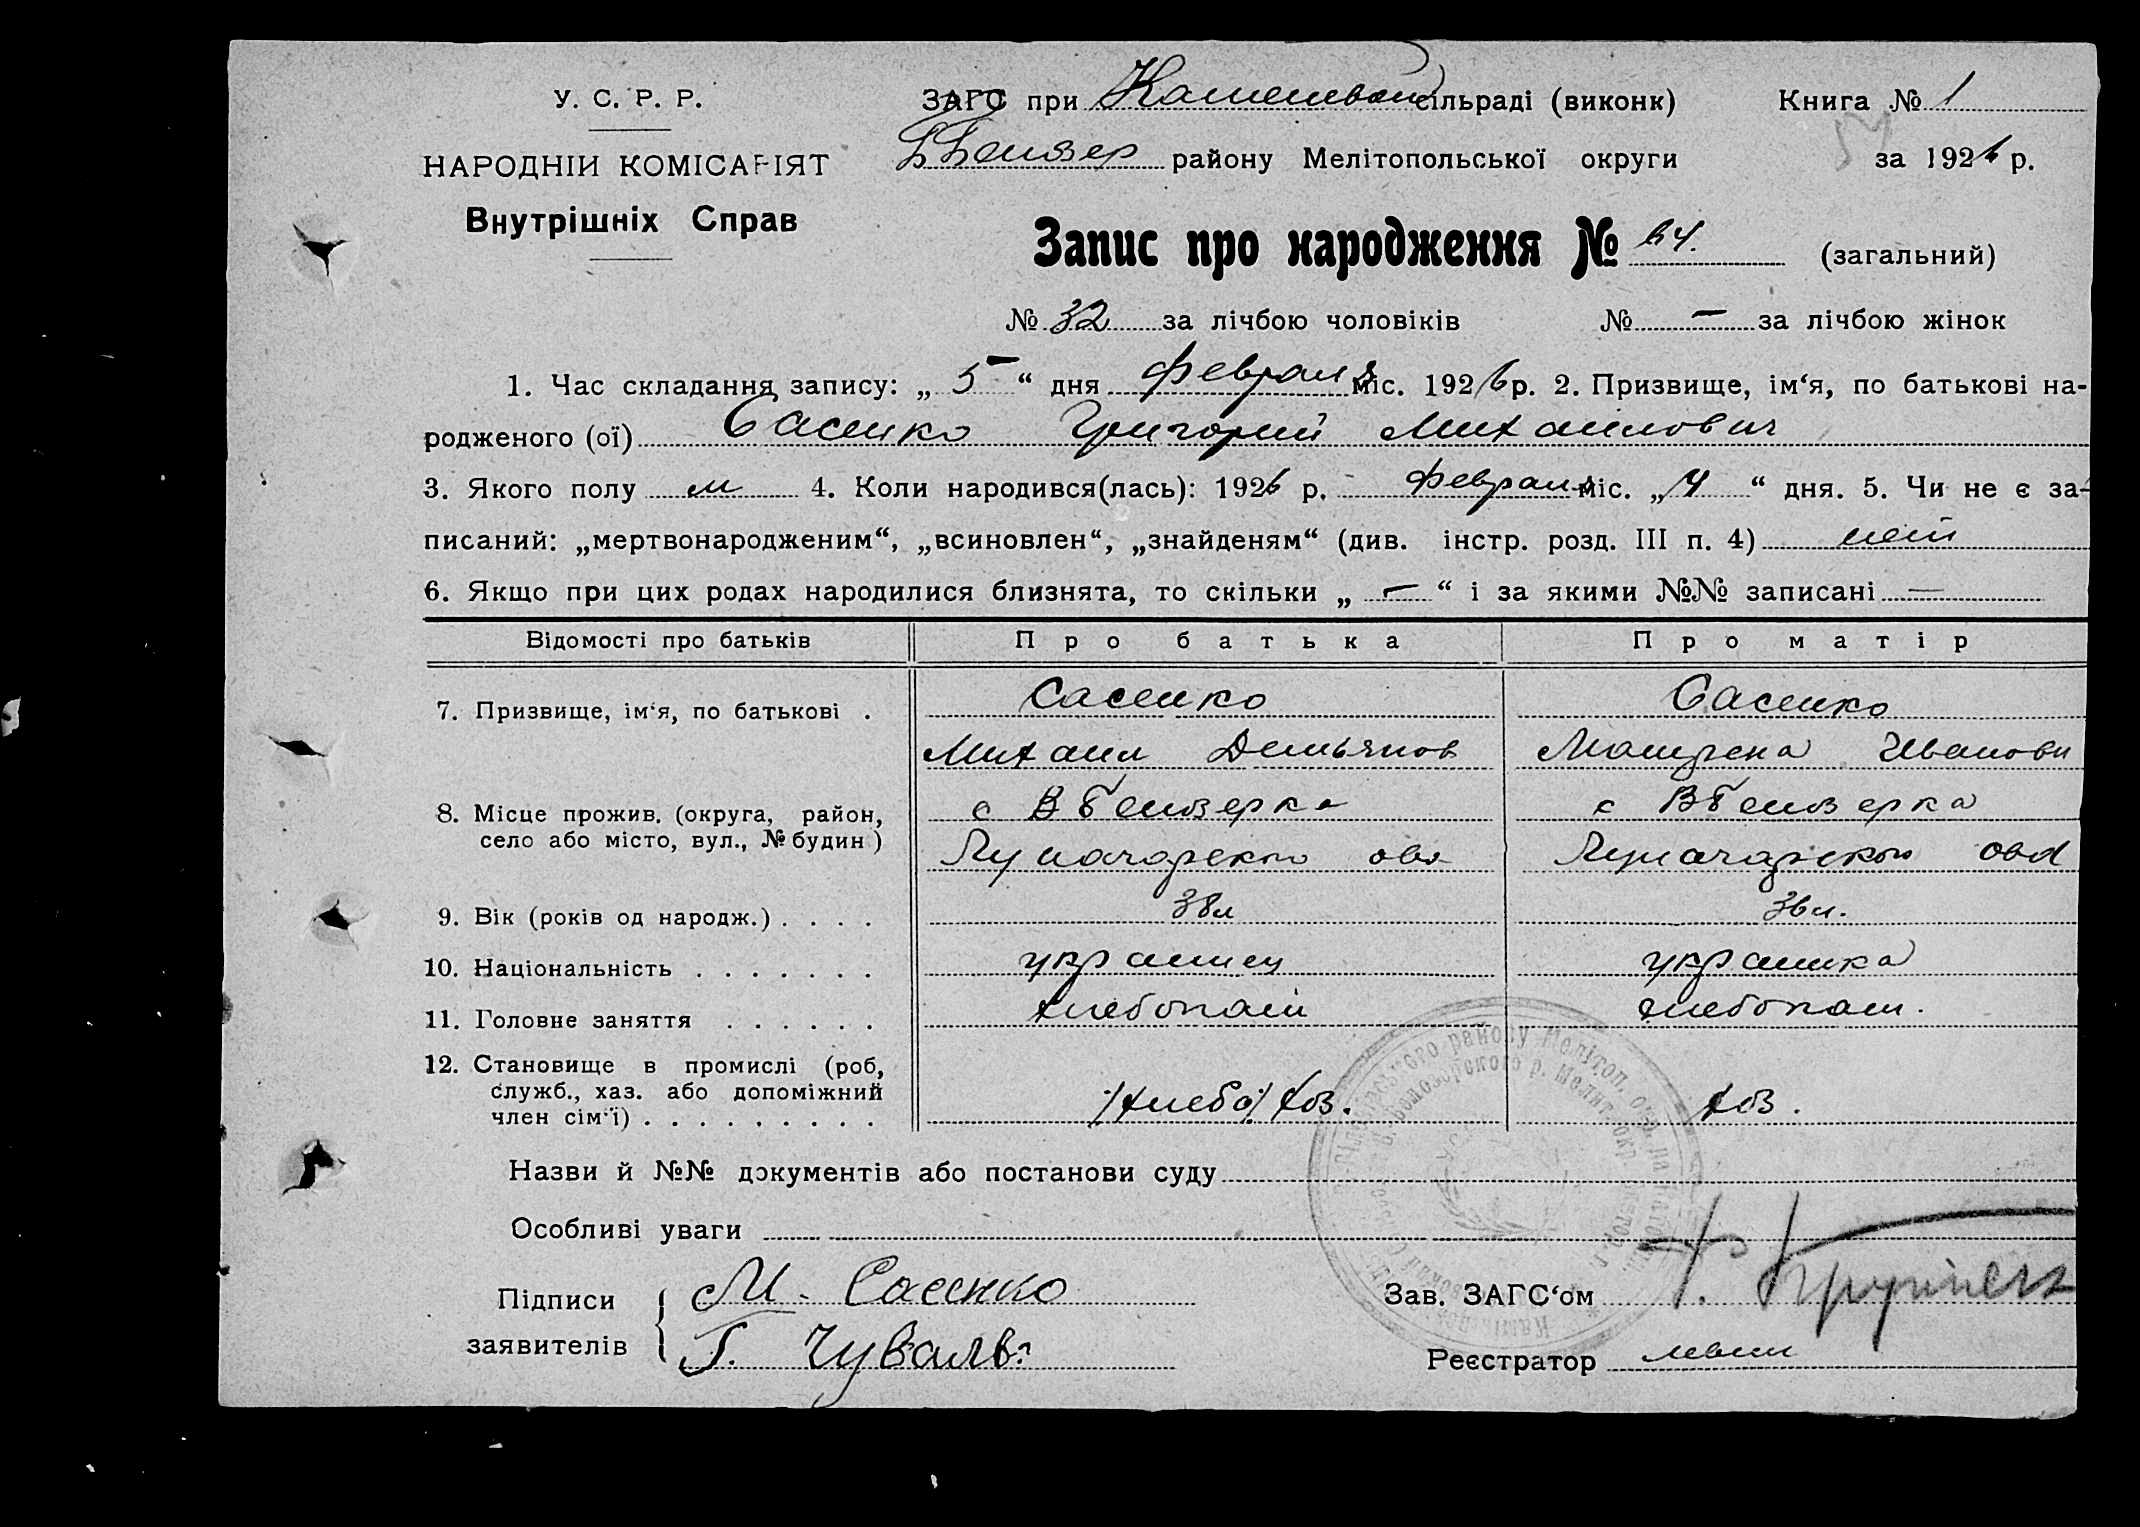 У. С. Р. Р.
НАРОДНІИ КОМІСАРІЯТ
Внутрішніх Справ
ЗАГС при сільраді (виконк) Книга № 1
району Мелітопольської округи за 1926 р.
Запис про народження № 64. (загальний)
№ 32 за лічбою чоловіків № — за лічбою жінок
1. Час складання запису: „ 5 “ дня февраля міс. 1926 р. 2. Призвище, ім‘я, по батькові на-
родженого (ої) Саенко Григорий Михаилович
3. Якого полу м 4. Коли народився(лась): 1926 р. февраля міс. „ 4 “ дня. 5. Чи не є за-
писаний: „мертвонародженим“, „всиновлен“, „знайденям“ (див. інстр. розд. III п. 4) нет
6. Якщо при цих родах народилися близнята, то скільки „ — “ і за якими №№ записані —
Відомості про батьків Про батька Про матір
7. Призвище, ім‘я, по батькові . Саенко Саенко
Михаил Демьянов Иванови
8. Місце прожив. (округа, район, с с
село або місто, вул., № будин )
9. Вік (років од народж.) . . . . 38 л 36 л.
10. Національність . . . . . . . украинец украинка
11. Головне заняття . . . . . . хлебопаш хлебопаш.
12. Становище в промислі (роб,
служб., хаз. або допоміжний хоз. хоз.
член сім‘ї) . . . . . . . . .
Назви й №№ документів або постанови суду
Особливі уваги
Підписи М. Саенко Зав. ЗАГС‘ом
заявителів Реєстратор